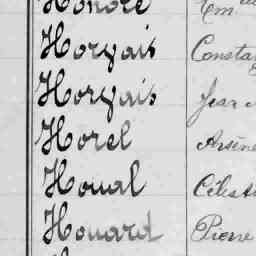 Honoré Em
Horvais Consta
Horvais Jean
Horel Arsène
Houal Célest
Houard Pierre